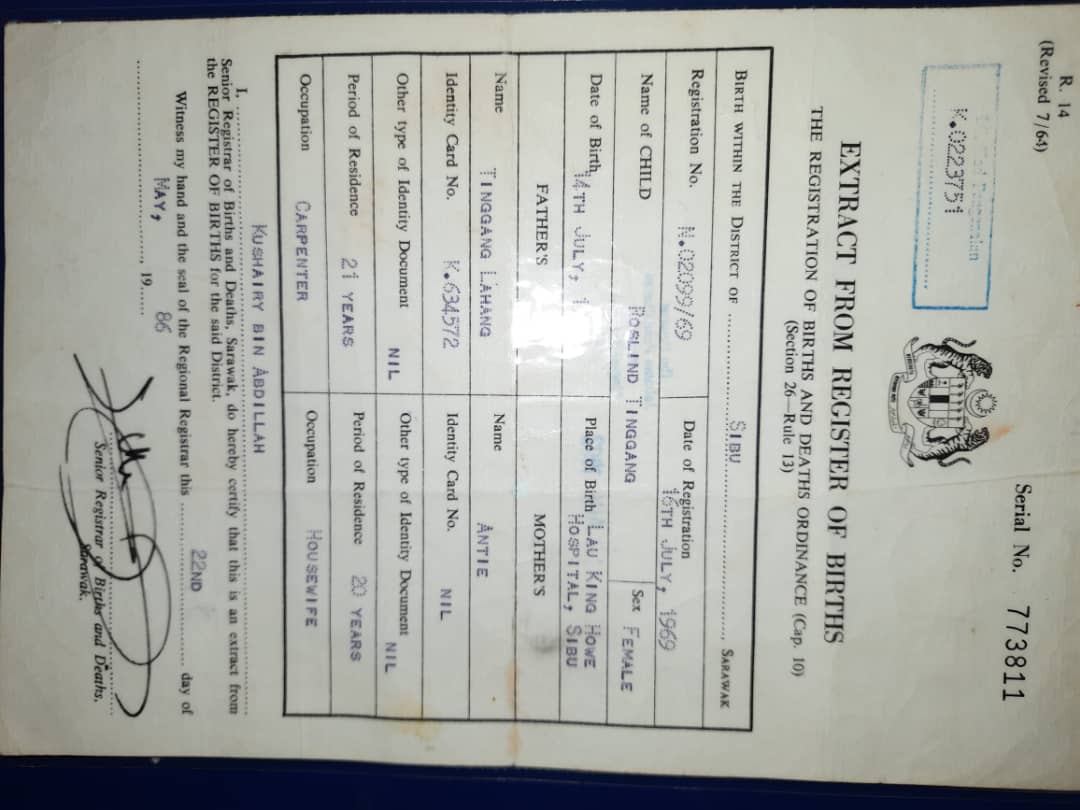 R. 14
(Revised 7/64)
Serial No. 773811
K.0223751
EXTRACT FROM REGISTER OF BIRTHS
THE REGISTRATION OF BIRTHS AND DEATHS ORDINANCE (Cap. 10)
(Section 26—Rule 13)
BIRTH WITHIN THE DISTRICT OF SIBU SARAWAK
Registration No. N.02099/69 Date of Registration 16TH JULY, 1969
Name of CHILD ROSLIND TINGGANG Sex FEMALE
Date of Birth 14TH JULY, 1 Place of Birth LAU KING HOWE
HOSPITAL, SIBU
FATHER'S MOTHER'S
Name TINGGANG LAHANG Name ANTIE
Identity Card No. K.634572 Identity Card No. NIL
Other type of Identity Document NIL Other type of Identity Document NIL
Period of Residence 21 YEARS Period of Residence 20 YEARS
Occupation CARPENTER Occupation HOUSEWIFE
I, KUSHAIRY BIN ABDILLAH
Senior Registrar of Births and Deaths, Sarawak, do hereby certify that this is an extract from
the REGISTER OF BIRTHS for the said District.
Witness my hand and the seal of the Regional Registrar this 22ND day of
MAY, 19 86
Senior Registrar of Births and Deaths,
Sarawak.